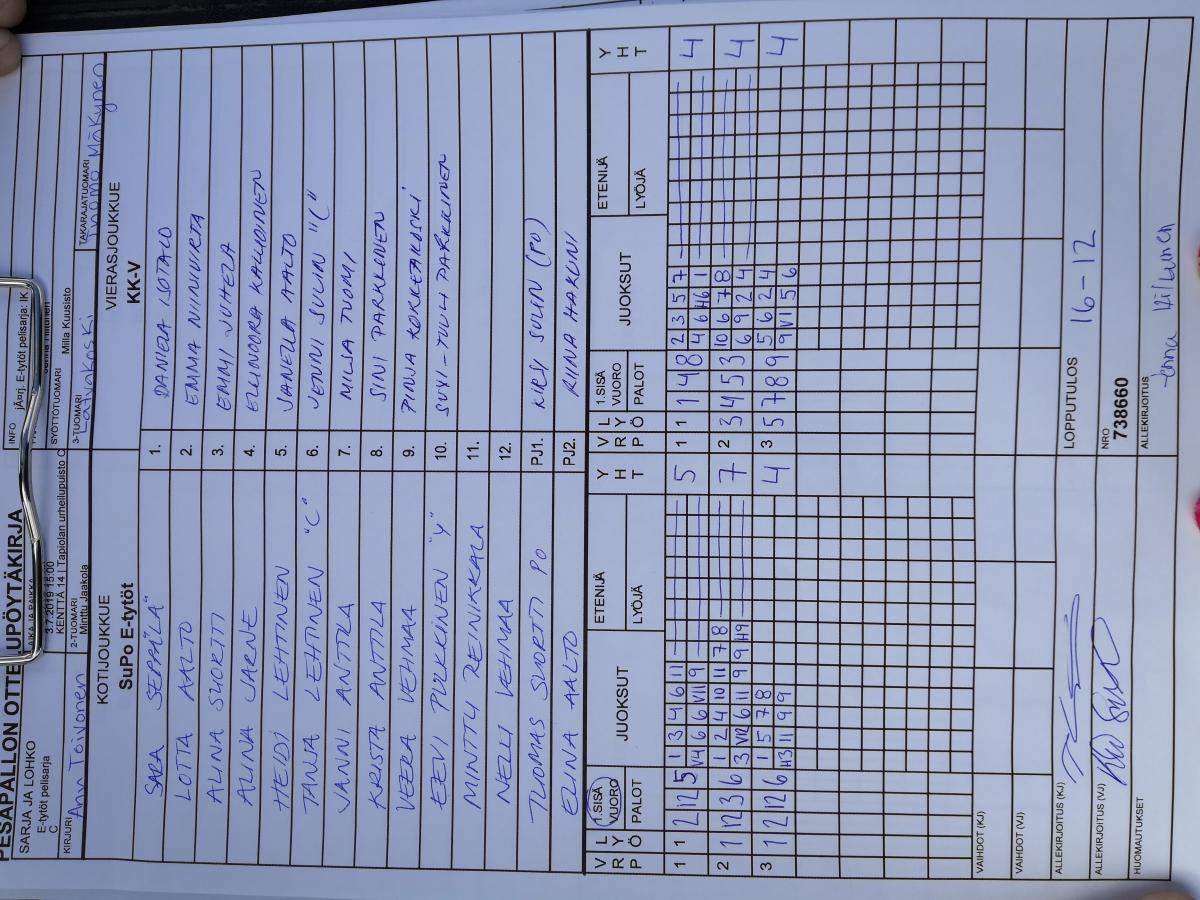 PESÄPALLON OTTELUPÖYTÄKIRJA
SARJA JA LOHKO
E-tytöt pelisarja
C
AIKA JA PAIKKA
3.7.2019 15:00
KENTTÄ 14 | Tapiolan urheilupuisto C
INFO
järj. E-tytöt pelisarja: IK
SYÖTTÖTUOMARI
Milla Kuusisto
KIRJURI
Toivonen
2-TUOMARI
Minttu Jaakola
3-TUOMARI
Latvakoski
TAKARAJATUOMARI
Tuomo Mäkynen
KOTIJOUKKUE
SuPo E-tytöt
VIERASJOUKKUE
KK-V
SARA SEPPÄLÄ 1. DANIELA ISOTALO
LOTTA AALTO 2. EMMA NIINIVIRTA
ALINA SUORTTI 3. EMMI JUHELA
ALINA JARNE 4. ELLINOORA KALLIOINEN
HEIDI LEHTINEN 5. JANELLA AALTO
TANJA LEHTINEN "C" 6. JENNI SULIN "C"
JANNI ANTTILA 7. MILJA TUOMI
KRISTA ANTTILA 8. SINI PARKKINEN
VEERA VEHMAA 9. PINJA KOKKEAKOSKI
EEVI PULKKINEN "Y" 10. SUVI-TUULI PARKKINEN
MINTTU REINIKKALA 11.
NELLI VEHMAA 12.
TUOMAS SUORTTI PO PJ1. KIRSI SULIN (PO)
ELINA AALTO PJ2. RIINA HAKUNI
V R P L Y Ö 1.SISÄ VUORO PALOT JUOKSUT ETENIJÄ LYÖJÄ Y H T V R P L Y Ö 1.SISÄ VUORO PALOT JUOKSUT ETENIJÄ LYÖJÄ Y H T
1 1 2 12 5 1 3 4 6 11 5 1 1 1 4 8 2 3 5 7 4
V4 6 6 VII 9 4 6 H6 1
2 1 12 3 6 1 2 4 10 11 7 8 7 2 3 4 5 3 10 6 7 8 4
3 V12 6 11 9 9 H9 6 9 2 4
3 1 2 12 6 1 5 7 8 4 3 5 7 8 9 5 6 2 4 4
H3 11 9 9 9 VI 5 6
VAIHDOT (KJ)
VAIHDOT (VJ)
ALLEKIRJOITUS (KJ)
LOPPUTULOS
16-12
ALLEKIRJOITUS (VJ)
NRO
738660
HUOMAUTUKSET
ALLEKIRJOITUS
Jenna Hiltunen